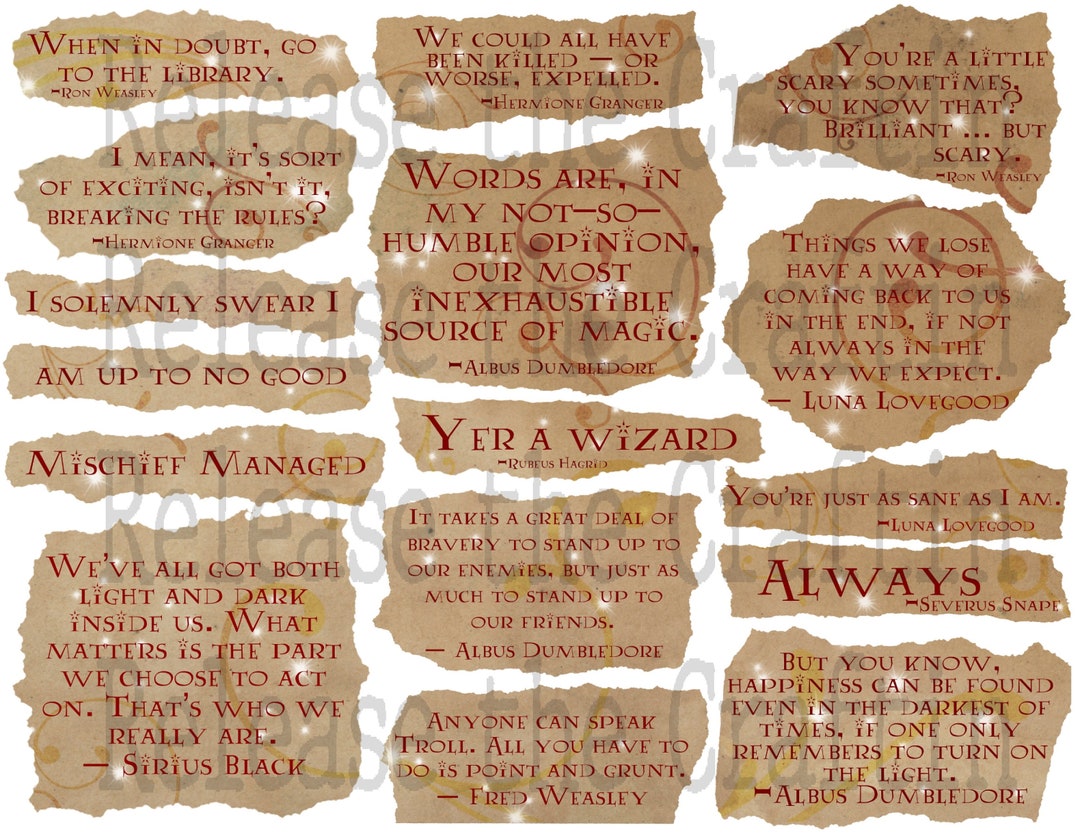 When in doubt, go
to the library.
-Ron Weasley
I mean, it's sort
of exciting, isn't it,
breaking the rules?
-Hermione Granger
I solemnly swear I
am up to no good
Mischief Managed
We've all got both
light and dark
inside us. What
matters is the part
we choose to act
on. That's who we
really are.
— Sirius Black
We could all have
been killed — or
worse, expelled.
-Hermione Granger
Words are, in
my not-so-
humble opinion,
our most
inexhaustible
source of magic.
-Albus Dumbledore
Yer a wizard
-Rubeus Hagrid
It takes a great deal of
bravery to stand up to
our enemies, but just as
much to stand up to
our friends.
— Albus Dumbledore
Anyone can speak
Troll. All you have to
do is point and grunt.
— Fred Weasley
You're a little
scary sometimes,
you know that?
Brilliant ... but
scary.
-Ron Weasley
Things we lose
have a way of
coming back to us
in the end, if not
always in the
way we expect.
— Luna Lovegood
You're just as sane as I am.
-Luna Lovegood
Always
-Severus Snape
But you know,
happiness can be found
even in the darkest of
times, if one only
remembers to turn on
the light.
-Albus Dumbledore
Release the Craft in
Release the Craft in
Release the Craft in
Release the Craft in